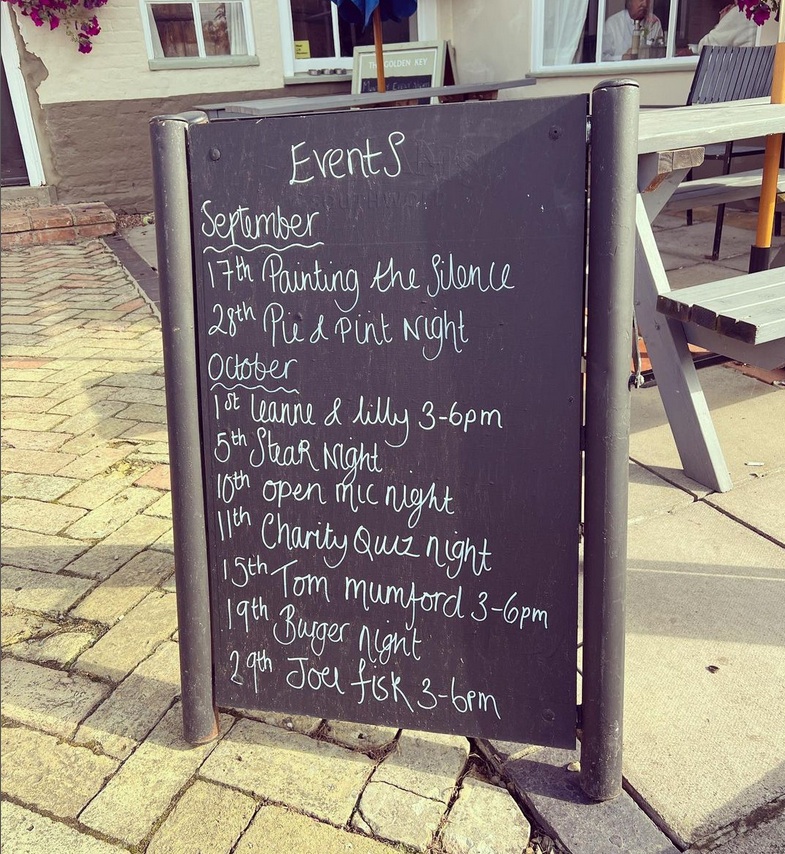 THE GOLDEN KEY
Events
SOUTHWOLD
September
17th Painting the Silence
28th Pie & Pint Night
October
1st Leanne & Lilly 3-6pm
5th Steak Night
10th open mic night
11th Charity Quiz night
15th Tom mumford 3-6pm
19th Burger night
29th Joel fisk 3-6pm